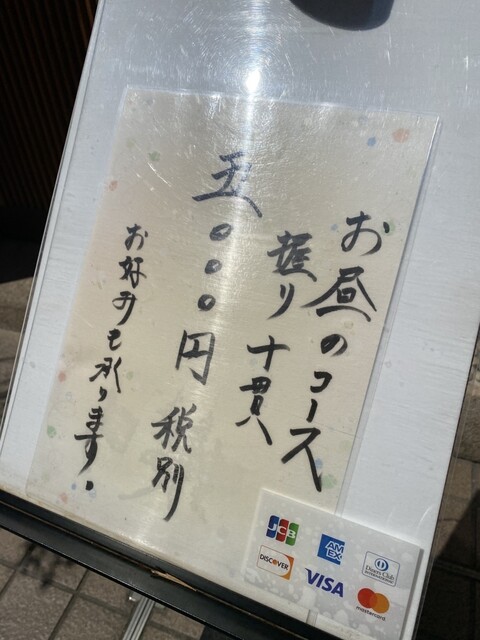 お昼のコース
握り十貫
五〇〇〇円 税別
お好みも承ります。
JCB
AMEX
Diners Club
INTERNATIONAL
DISCOVER
VISA
mastercard